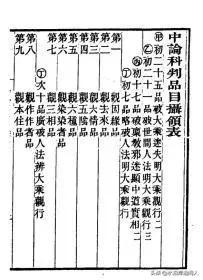 中論科判品目攝領表
甲初二十五品破大乘迷失明大乘觀行二
乙初二十一品破世間人法明大乘觀行三
丙初十七品破稟教邪迷顯中道實相二
丁初七品略破人法明大乘觀行
第一 觀因緣品
第二 觀去來品
第三 觀六情品
第四 觀五陰品
第五 觀六種品
第六 觀染染者品
第七 觀三相品
丁次十品廣破人法辨大乘觀行
第八 觀作作者品
第九 觀本住品